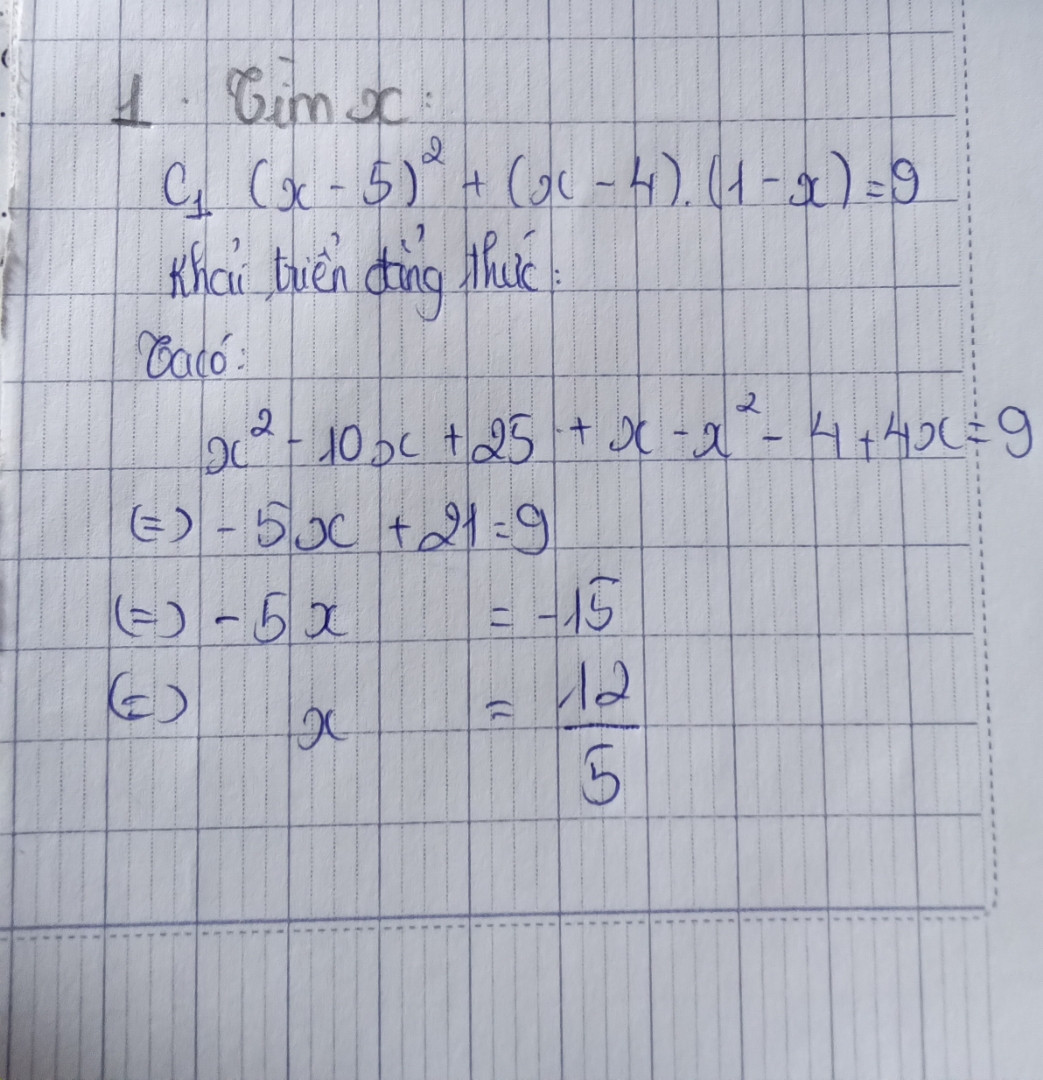 1. Tìm x:
C1 (x - 5)² + (x - 4).(1 - x) = 9
Khải triển đẳng thức:
Ta có:
x² - 10x + 25 + x - x² - 4 + 4x = 9
(=) - 5x + 21 = 9
(=) - 5x = -15
(=) x = 12/5